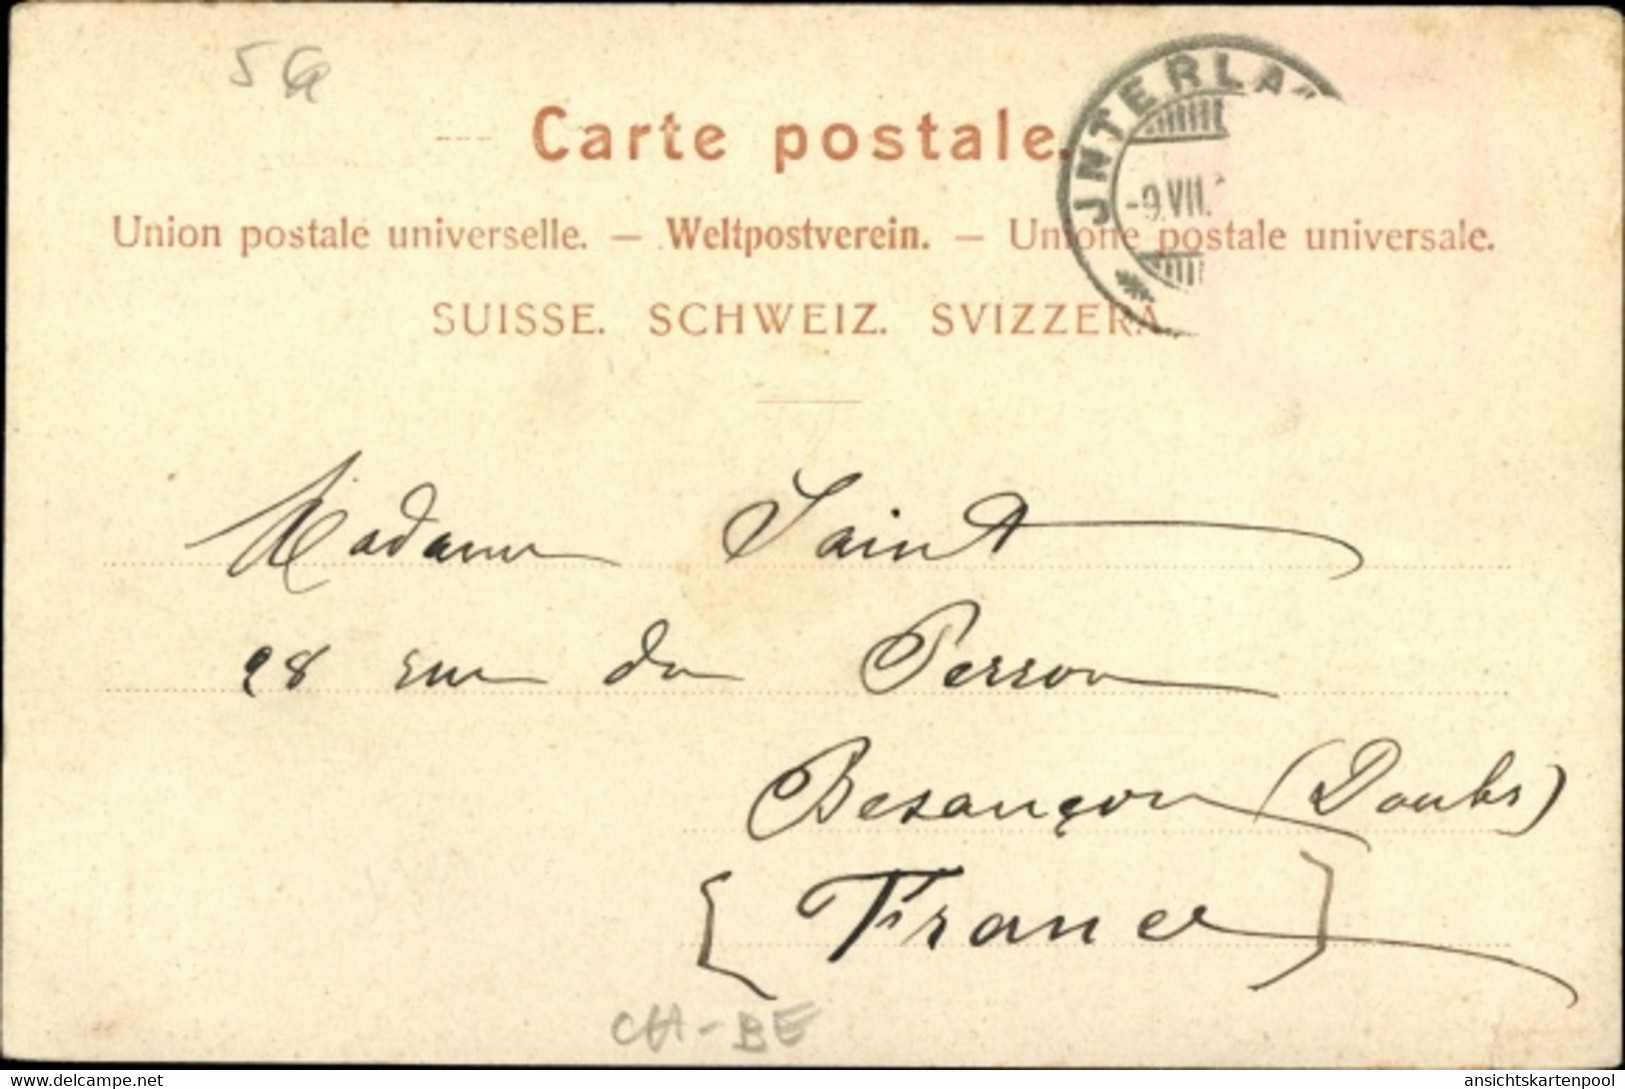 5 Ga
Carte postale.
JNTERLA
-9.VII.
Union postale universelle. — Weltpostverein. — Unione postale universale.
SUISSE. SCHWEIZ. SVIZZERA.
Madame Saint
28 rue du Perron
Besançon (Doubs)
[France]
CH-BE
akpool.de
ansichtskartenpool